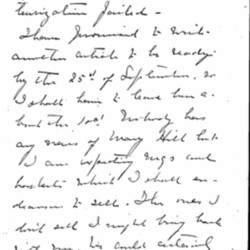 terization failed -
I have promised to write
another article to be ready
by the 25th of September, so
I shall have to leave here a-
bout the 10th. Nobody has
any news of Mary Hill but
I am expecting rugs and
baskets which I shall en-
deavor to sell. The ones I
don't sell I might bring back
with me. We could certainly